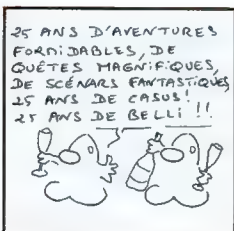 25 ANS D'AVENTURES
FORMIDABLES, DE
QUÊTES MAGNIFIQUES,
DE SCÉNARS FANTASTIQUES,
25 ANS DE CASUS!
25 ANS DE BELLI !!